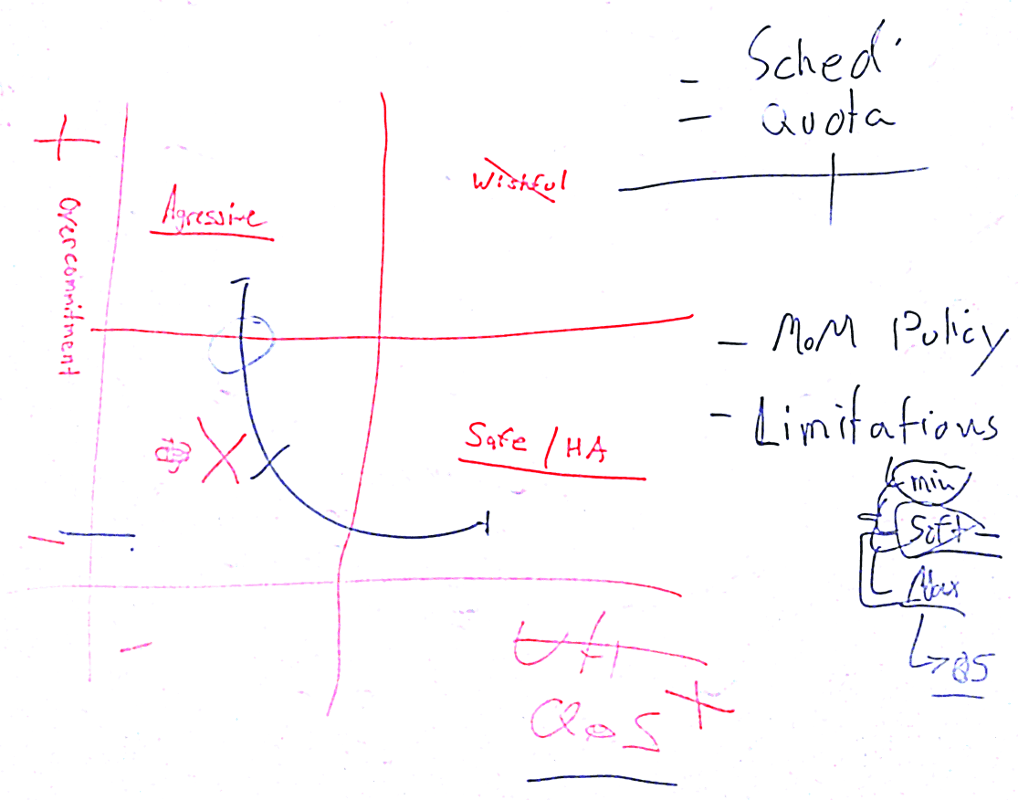 - Sched
- Quota
+
Overcommitment
Agressive
Wishful
- MoM Policy
- Limitations
Safe / HA
min
Soft
Max
-
-
QoS +